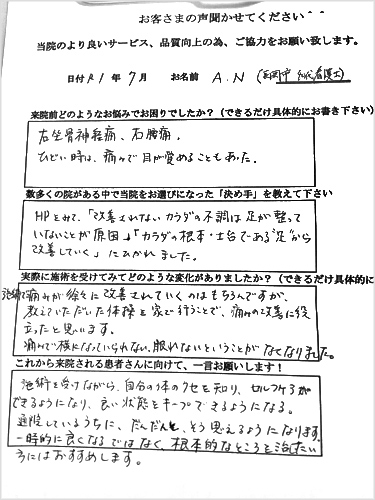 お客さまの声聞かせてください^^
当院のより良いサービス、品質向上の為、ご協力をお願い致します。
日付 R1年 7月 お名前 A.N (長岡市 50代 看護士)
来院前どのようなお悩みでお困りでしたか？（できるだけ具体的にお書き下さい）
左坐骨神経痛、右腰痛。
ひどい時は、痛みで目が覚めることもあった。
数多くの院がある中で当院をお選びになった「決め手」を教えて下さい
HPをみて、「改善されないカラダの不調は足が整って
いないことが原因」「カラダの根本・土台である"足"から
改善していく」にひかれました。
実際に施術を受けてみてどのような変化がありましたか？（できるだけ具体的に
施術で痛みが徐々に改善されていくのはもちろんですが、
教えていただいた体操を家で行うことで、痛みの改善に役
立ったと思います。
痛みで横になっていられない、眠れないということがなくなりました。
これから来院される患者さんに向けて、一言お願いします！
施術を受けながら、自分の体のクセを知り、セルフケアが
できるようになり、良い状態をキープできるようになる。
通院しているうちに、だんだんと、そう思えるようになります。
一時的に良くなるではなく、根本的なところを治したい
方にはおすすめします。